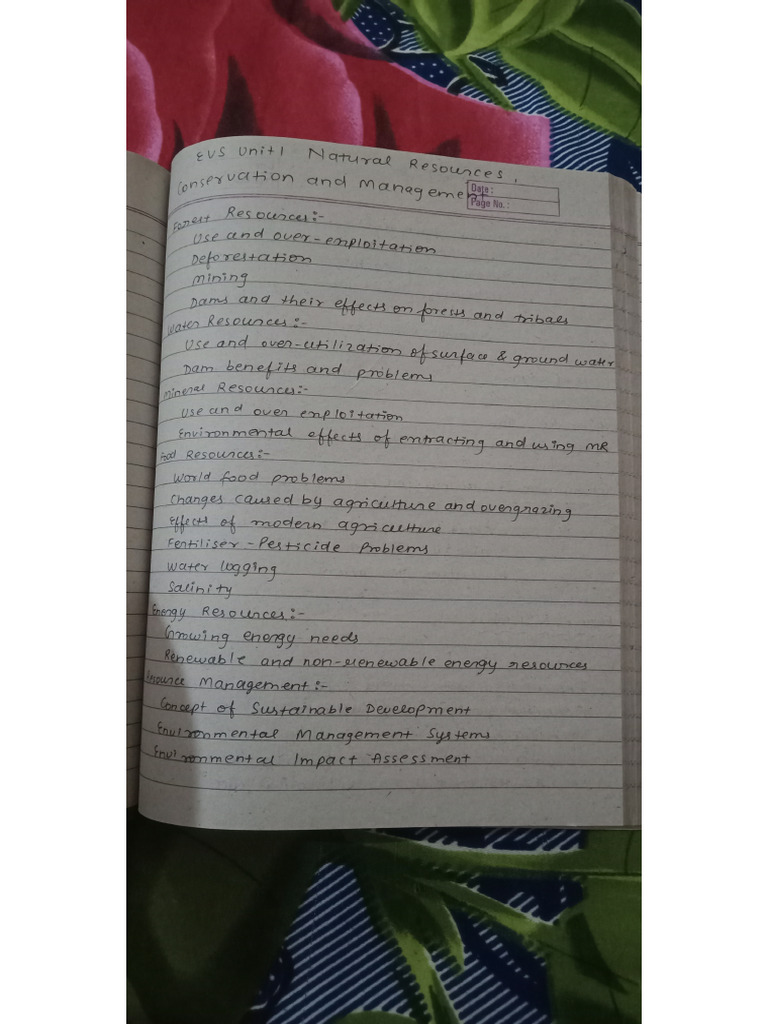 EVS Unit 1 Natural Resources,
Conservation and Management
Date :
Page No. :
Forest Resources:-
Use and over-exploitation
Deforestation
Mining
Dams and their effects on forests and tribals
Water Resources:-
Use and over-utilization of surface & ground water
Dam benefits and problems
Mineral Resources:-
Use and over exploitation
Environmental effects of extracting and using MR
Food Resources:-
World food problems
Changes caused by agriculture and overgrazing
Effects of modern agriculture
Fertiliser-Pesticide Problems
Water logging
Salinity
Energy Resources:-
Growing energy needs
Renewable and non-renewable energy resources
Resource Management:-
Concept of Sustainable Development
Environmental Management Systems
Environmental Impact Assessment